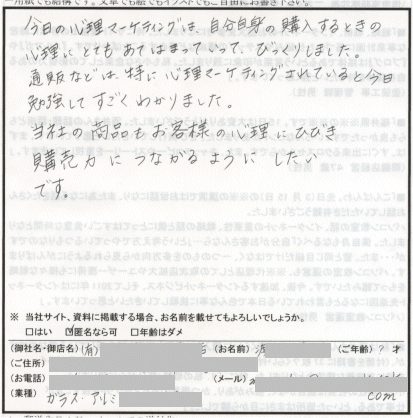 今日の心理マーケティングは、自分自身の購入するときの
心理にとてもあてはまっていって、びっくりしました。
通販などは、特に心理マーケティングされていると今日
勉強してすごくわかりました。
当社の商品もお客様の心理にひびき
購売力につながるようにしたい
です。
※ 当社サイト、資料に掲載する場合、お名前を載せてもよろしいでしょうか。
□はい ☑匿名なら可 □年齢はダメ
(御社名・御店名) (有) (お名前) (ご年齢) ? 才
(ご住所)
(お電話) (メール)
(業種) ガラス・アルミ com